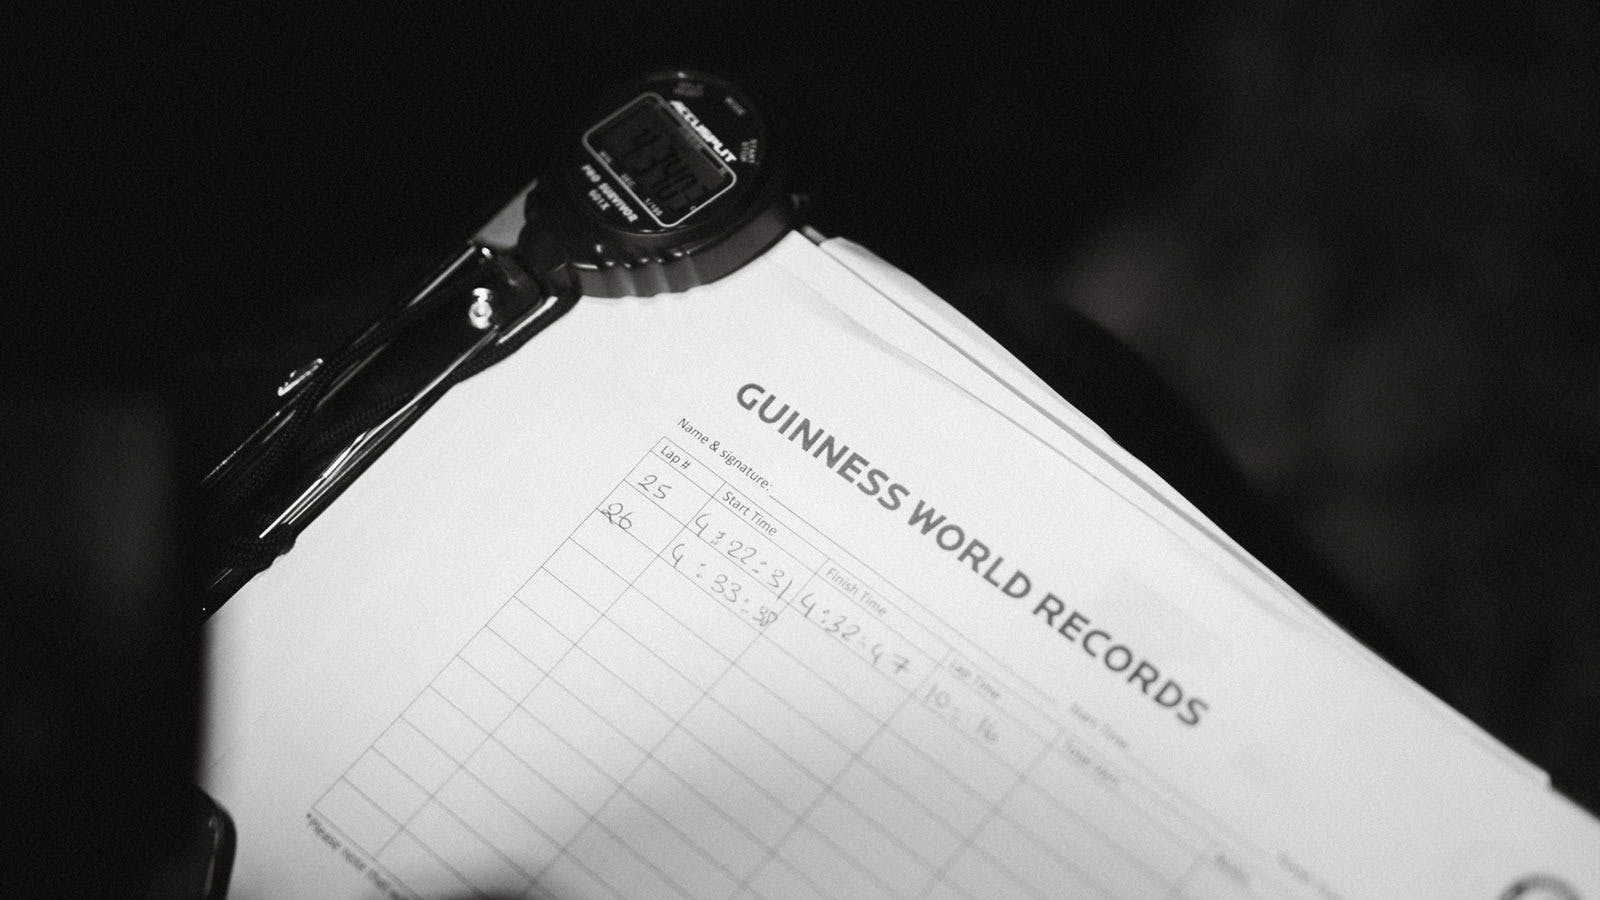 ACCUSPLIT
PRO SURVIVOR
601X
GUINNESS WORLD RECORDS
Name & signature:
Lap # Start Time Finish Time Lap Time
25 4:22:31 4:32:47 10:16
26 4:33:38
*Please note that